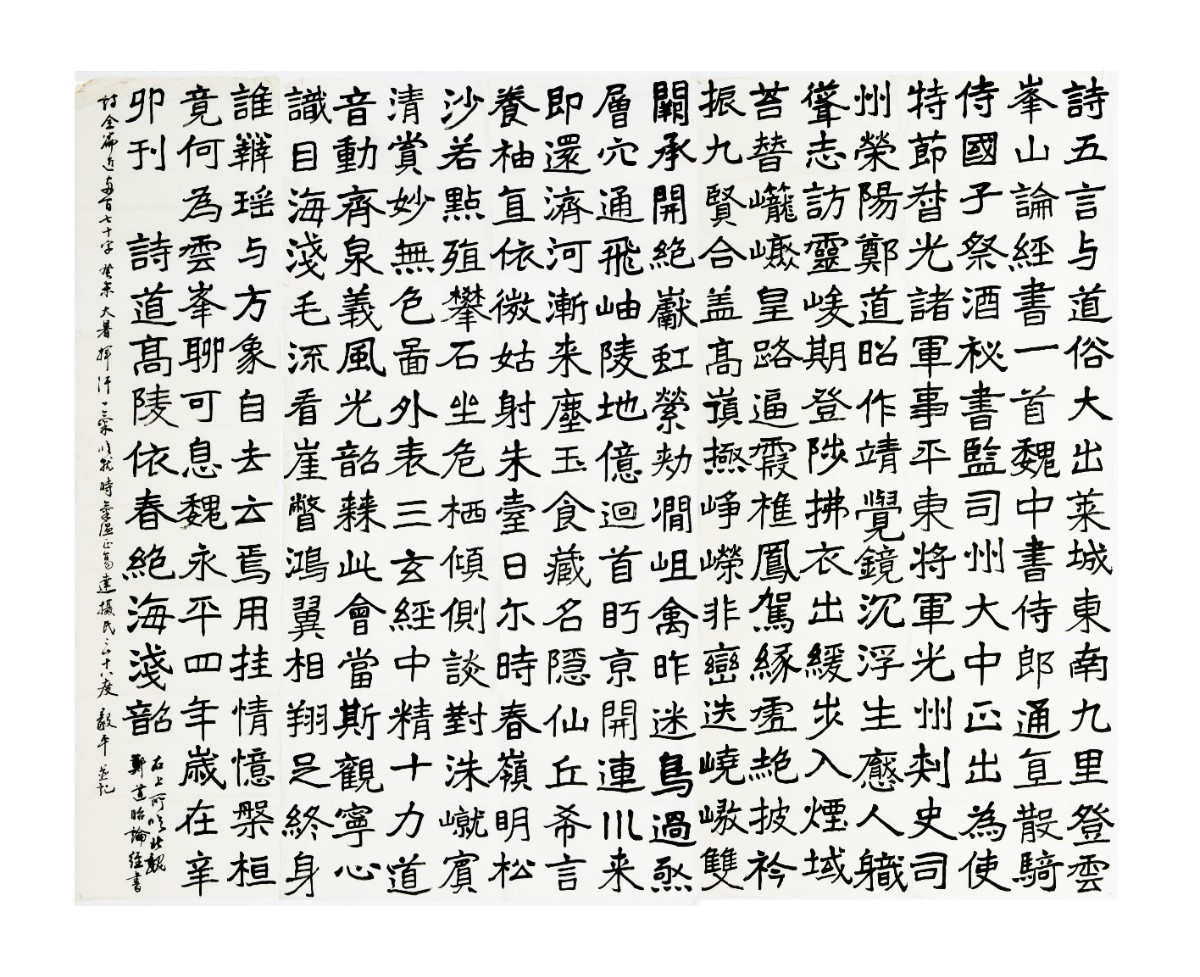 詩五言与道俗大出莱城東南九里登雲
峯山論經書一首魏中書侍郎通直散騎
侍國子祭酒秘書監司州大中正出為使
特節督光諸軍事平東將軍光州刺史司
州滎陽鄭道昭作靖覺鏡沉浮生應人軄
聳志訪靈峻期登陟拂衣出緩步入煙域
苔替巄巇皇路逼霞樵鳳駕緣虛絶披衿
振九賢合盖高嶺極崢嶸非巒迭嶢巘雙
闕承開絶巘虹縈劫澗岨禽昨迷鳥過亟
層穴通飛岫陵地億迴首眄京開連川来
即還濟河漸来塵玉食藏名隱仙丘希言
養柚直依微姑射朱臺日尓時春嶺明松
沙若點殖攀石坐危栖傾側談對洙嶽賓
清賞妙無色啚外表三玄經中精十力道
音動齊泉義風光韶棘此會當斯觀寧心
識目海淺毛流看崖瞥鴻翼相翔足終身
誰辨瑶与方象自去云焉用挂情憶槃桓
竟何為雲峯聊可息魏永平四年歳在辛
卯刊 詩道髙陵依春絶海淺韶
右上所临北魏
鄭道昭論經書
詩全篇近百七十字癸未大暑揮汗一氣临就時氣温正高達攝氏三十八度毅平並記